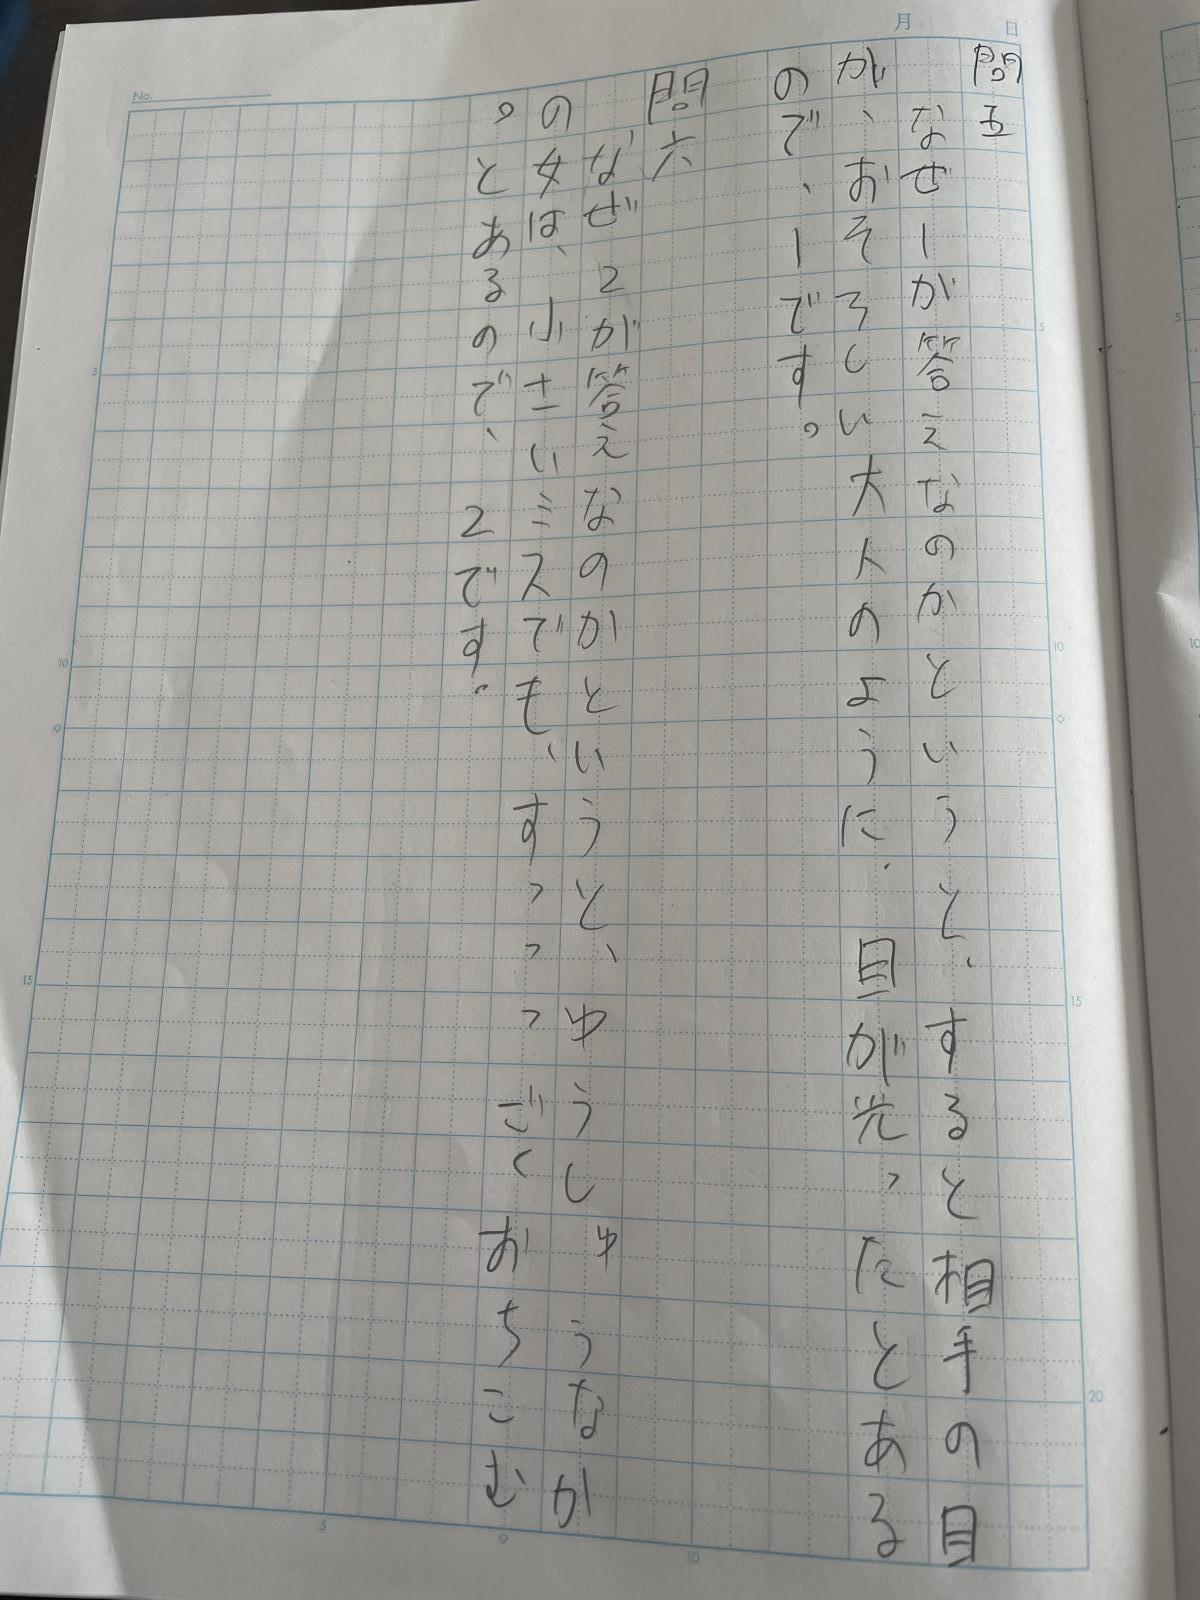 月 日
No.
問五
なぜ1が答えなのかというと、すると相手の目
が、おそろしい大人のように、目が光ったとある
ので、1です。
問六
なぜ2が答えなのかというと、ゆうしゅうなか
の女は、小さいミスでも、すっっっごくおちこむ
。とあるので、2です。